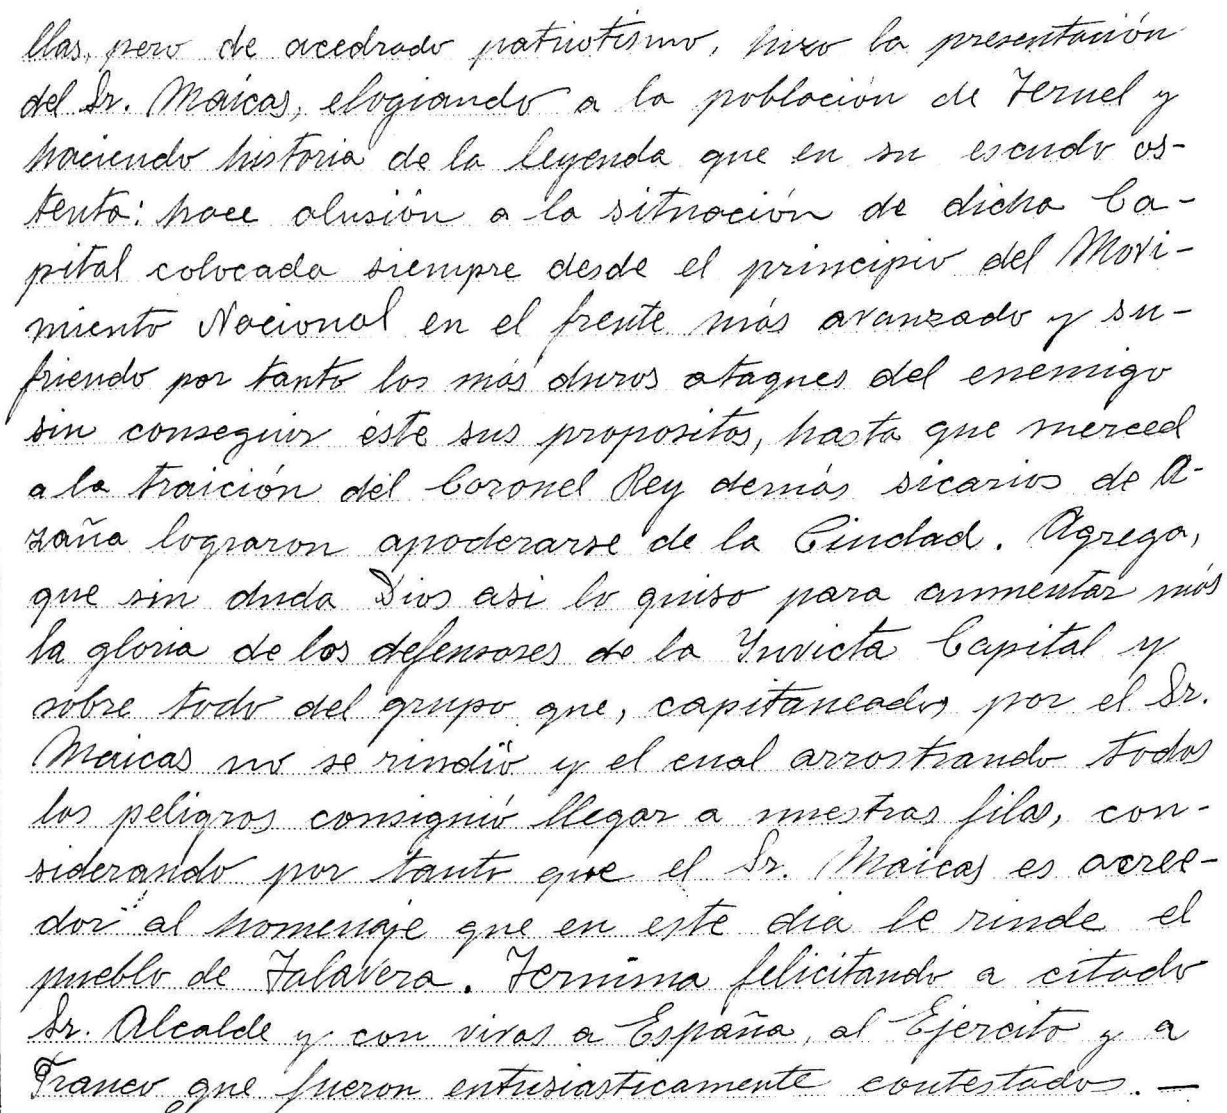 llas, pero de acedrado patriotismo, hizo la presentación
del Sr. Maicas, elogiando a la población de Teruel y
haciendo historia de la leyenda que en su escudo os-
tenta: hace alusión a la situación de dicha Ca-
pital colocada siempre desde el principio del Movi-
miento Nacional en el frente más avanzado y su-
friendo por tanto los más duros ataques del enemigo
sin conseguir éste sus propositos, hasta que merced
a la traición del Coronel Rey demás sicarios de A-
zaña lograron apoderarse de la Ciudad. Agrega,
que sin duda Dios asi lo quiso para aumentar más
la gloria de los defensores de la Invicta Capital y
sobre todo del grupo que, capitaneados por el Sr.
Maicas no se rindió y el cual arrostrando todos
los peligros consiguió llegar a nuestras filas, con-
siderando por tanto que el Sr. Maicas es acree-
dor al homenaje que en este dia le rinde el
pueblo de Talavera. Termina felicitando a citado
Sr. Alcalde y con vivas a España, al Ejercito y a
Franco que fueron entusiasticamente contestados. —